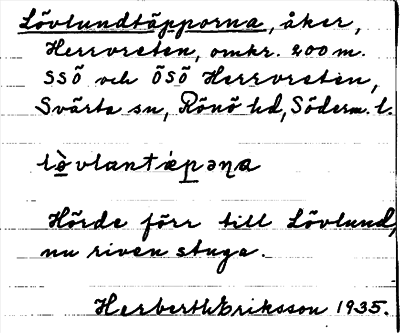 Lövlundtäpporna, åker,
Herrvreten, omkr. 200 m.
SSÖ och ÖSÖ Herrvreten,
Svärta sn, Rönö hd, Söderm. l.
lö̀vlantǽpəɳa
Hörde förr till Lövlund,
nu riven stuga.
Herbert Eriksson 1935.